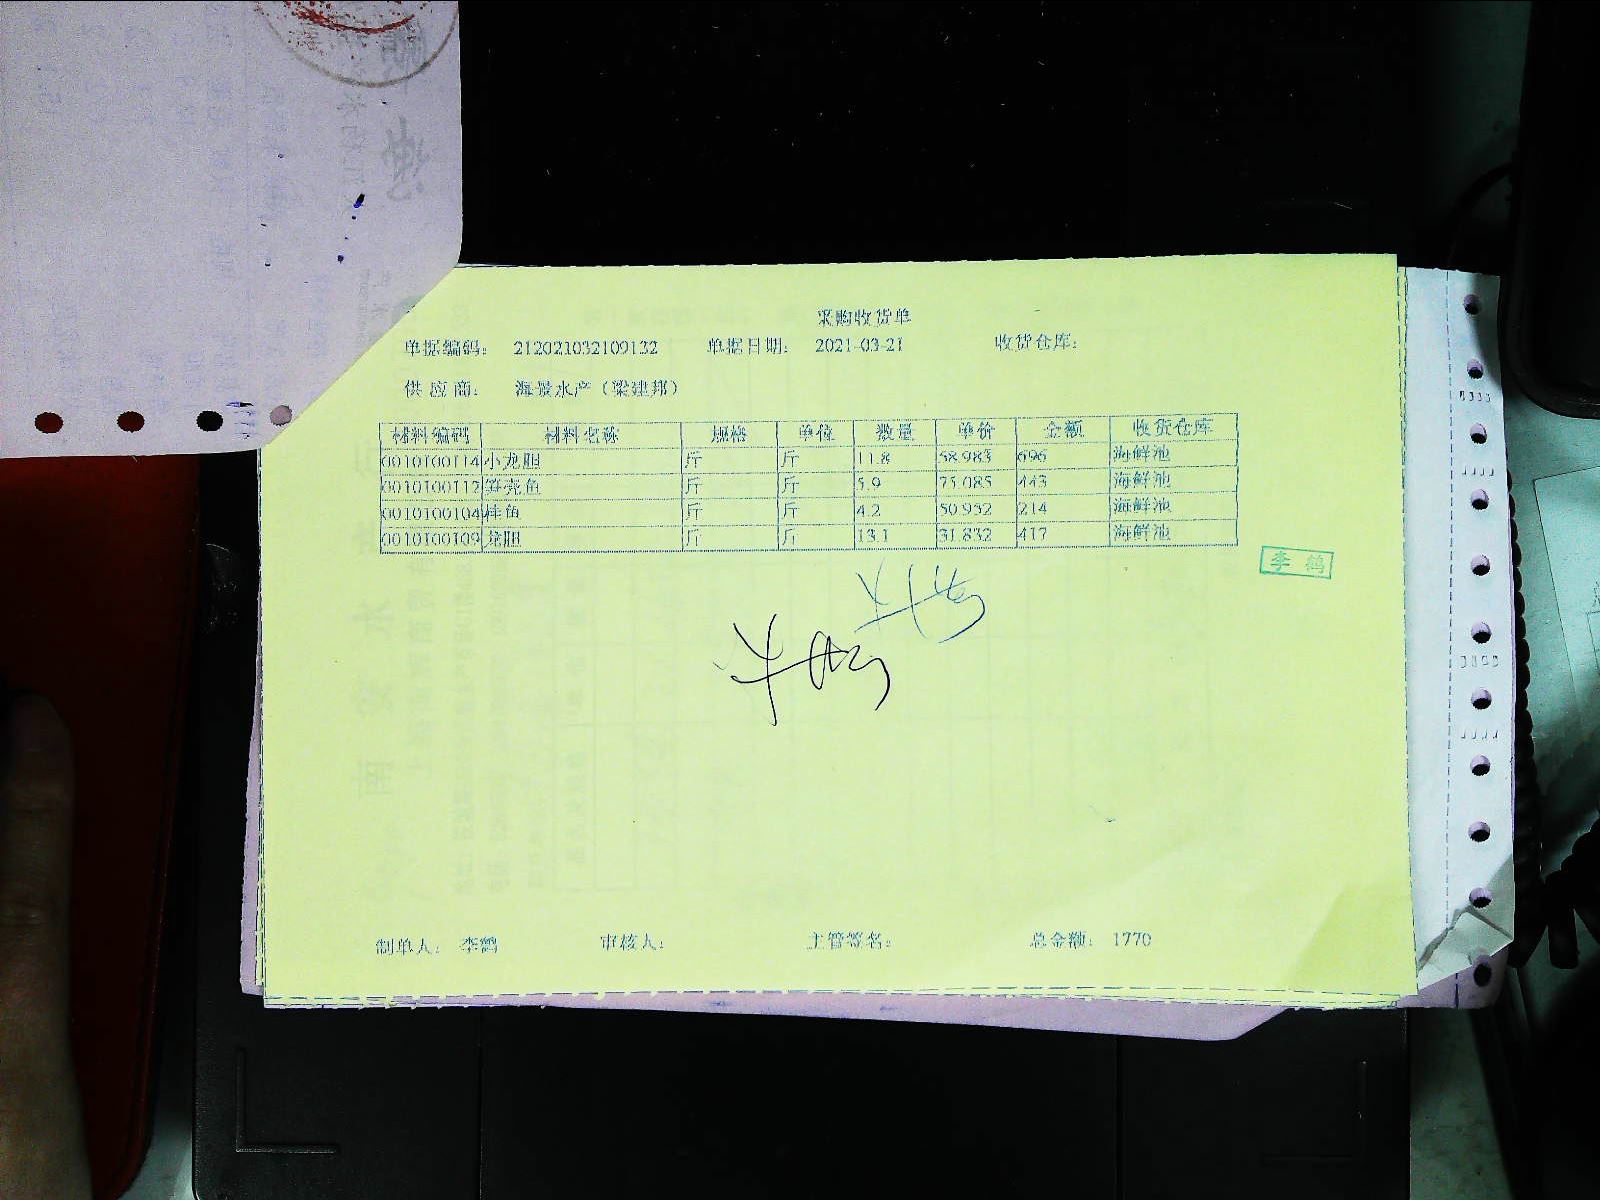 采购收货单
单据编码: 212021032109132 单据日期: 2021-03-21 收货仓库:
供应商: 海景水产（梁建邦）
材料编码 材料名称 规格 单位 数量 单价 金额 收货仓库
0010100114 小龙胆 斤 斤 11.8 58.983 696 海鲜池
0010100112 笋壳鱼 斤 斤 5.9 75.085 443 海鲜池
0010100104 桂鱼 斤 斤 4.2 50.952 214 海鲜池
0010100109 龙胆 斤 斤 13.1 31.832 417 海鲜池
李鹤
制单人: 李鹤 审核人: 主管签名: 总金额: 1770